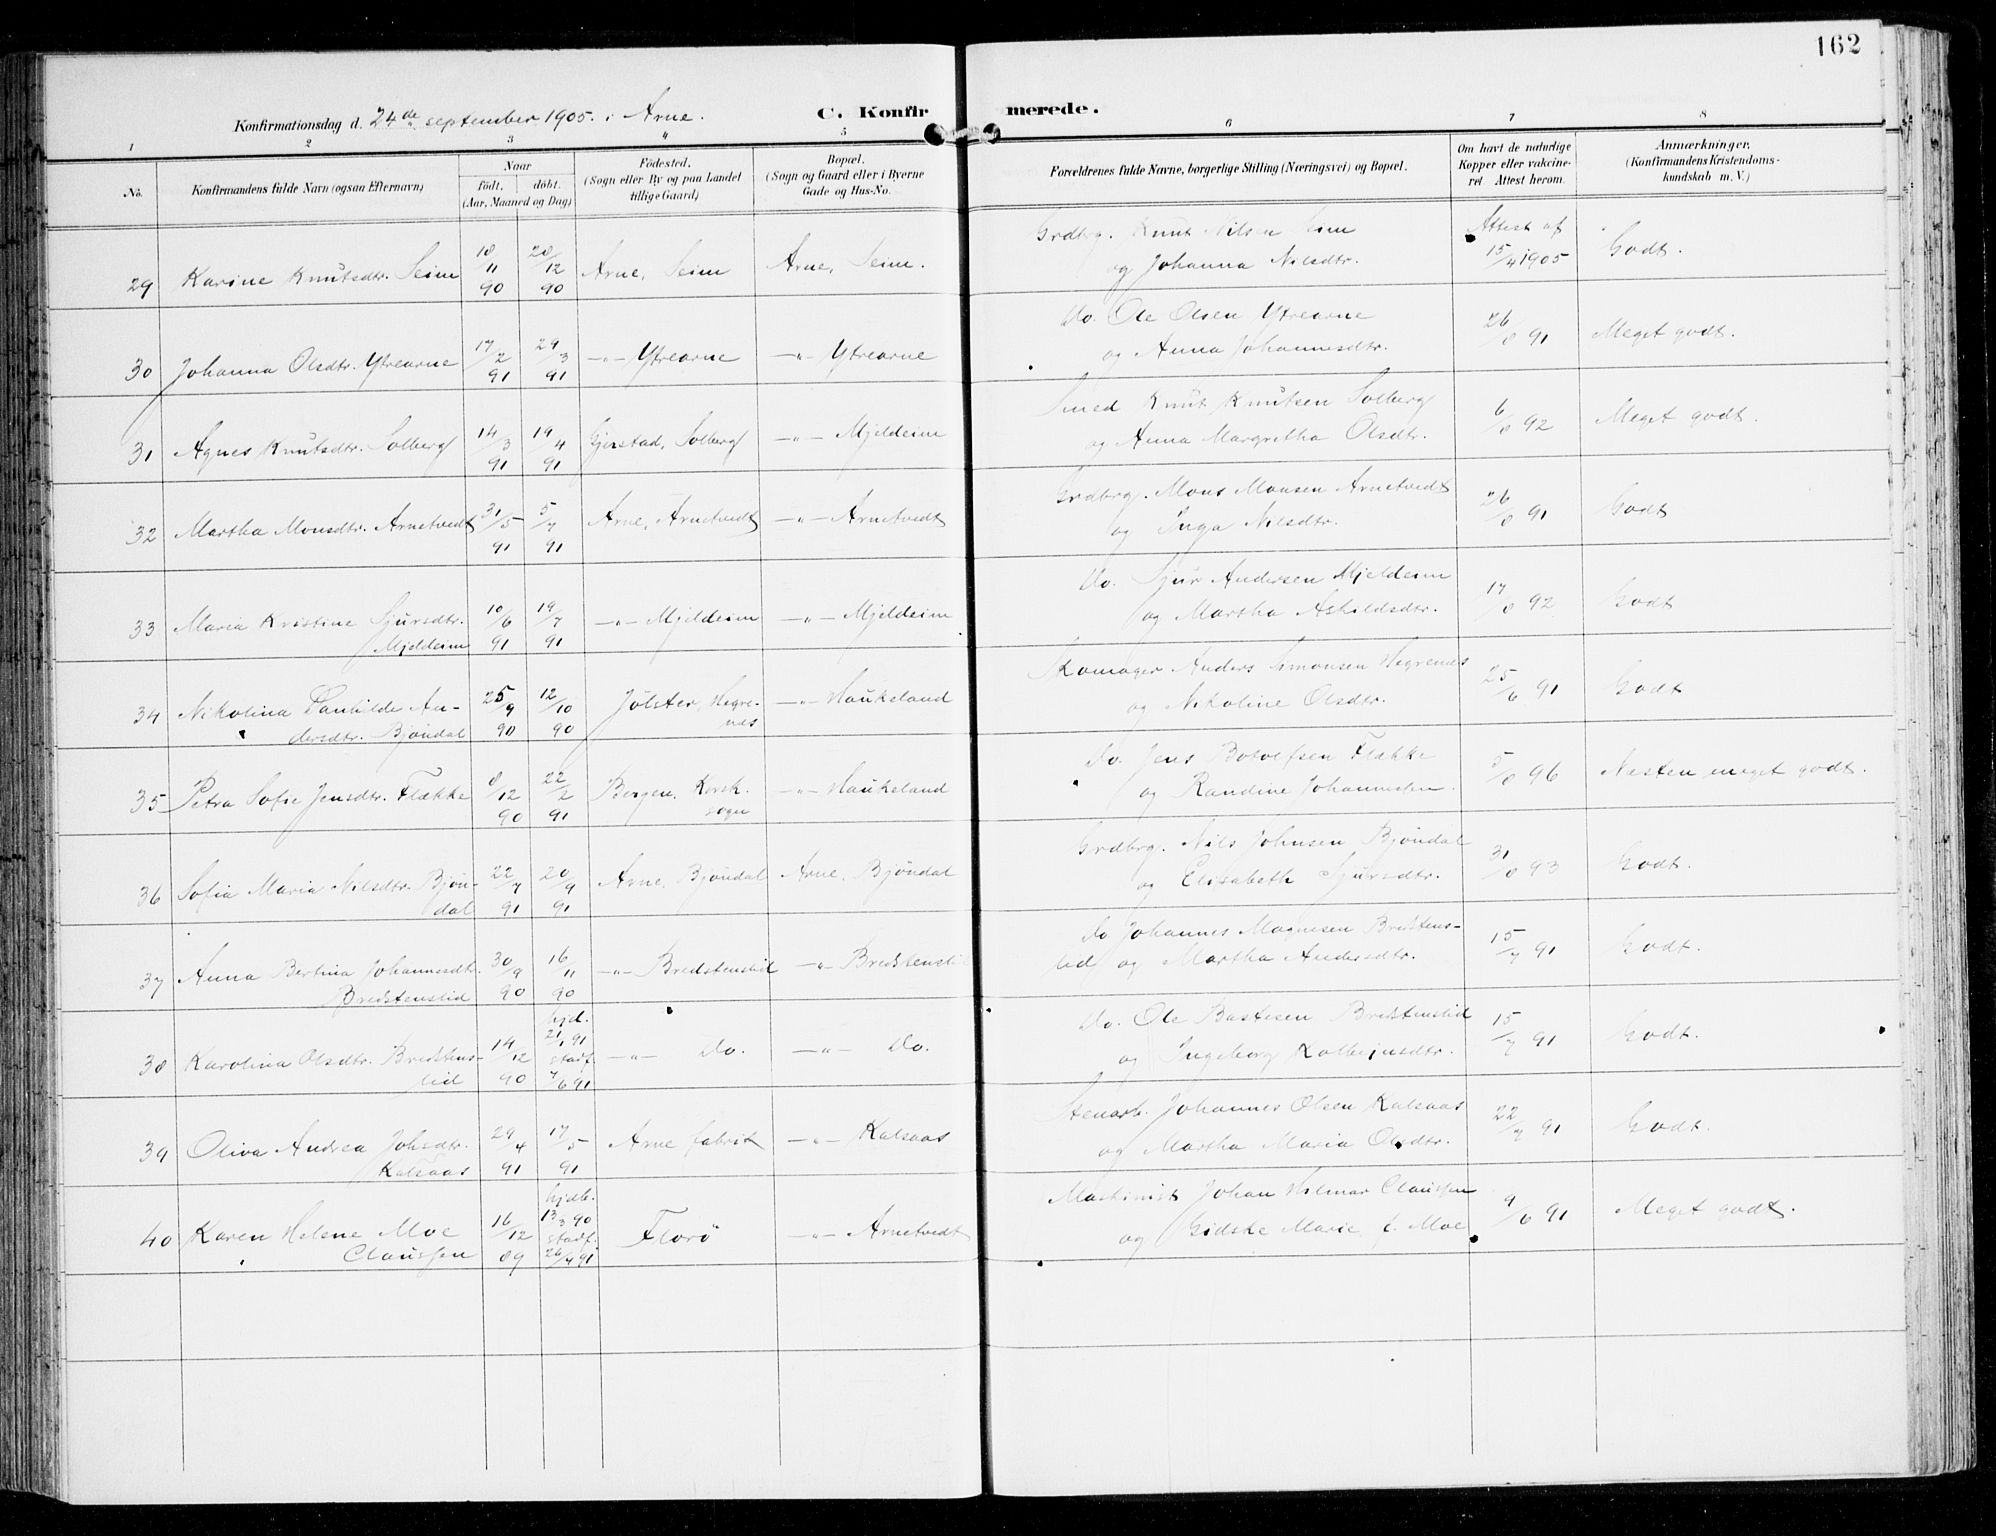 162
Konfirmationsdag d. 24de september 1905. i Arne.
C. Konfirmerede.
1 2 3 4 5 6 7 8
No. Konfirmandens fulde Navn (ogsaa Efternavn) Naar født, døbt. (Aar, Maaned og Dag) Födested. (Sogn eller By og paa Landet tillige Gaard) Bopæl. (Sogn og Gaard eller i Byerne Gade og Hus-No. Forældrenes fulde Navne, borgerlige Stilling (Næringsvei) og Bopæl. Om havt de naturlige Kopper eller vakcineret. Attest herom. Anmærkninger. (Konfirmandens Kristendomskundskab m. V.)
29 Karine Knutsdtr. Seim 18/11 90 28/12 90 Arne, Seim Arne, Seim. Grdbrg. Knut Nilsen Seim og Johanna Nilsdtr. Attest af 15/4 1905 Godt.
30 Johanna Olsdtr. Ytrearne 17/2 91 29/3 91 —"— Ytrearne —"— Ytrearne Do. Ole Olsen Ytrearne og Anna Johannesdtr. 26/8 91 Meget godt.
31 Agnes Knutsdtr. Solberg 14/3 91 19/4 91 Gjerstad, Solberg —"— Mjeldeim Smed Knut Knutsen Solberg og Anna Margretha Olsdtr. 6/8 92 Meget godt.
32 Martha Monsdtr. Arnetvedt 31/5 91 5/7 91 Arne, Arnetvedt —"— Arnetvedt Grdbrg. Mons Monsen Arnetvedt og Inga Nilsdtr. 26/8 91 Godt
33 Maria Kristine Sjursdtr. Mjeldeim 10/6 91 19/7 91 —"— Mjeldeim —"— Mjeldeim Do. Sjur Andersen Mjeldeim og Martha Askildsdtr. 17/8 92 Godt
34 Nikolina Danhilde Andersdtr. Bjöndal 25/9 90 12/10 90 Jölster, Hegrenes —"— Haukeland Skomager Anders Simonsen Hegrenes og Nikoline Olsdtr. 25/6 91 Godt
35 Petra Sofie Jensdtr. Flække 8/12 90 22/2 91 Bergen, Korsk. sogn —"— Haukeland Do. Jens Botolfsen Flække og Randine Johannessen. 5/8 96 Næsten meget godt.
36 Sofia Maria Nilsdtr. Bjöndal 22/7 91 20/9 91 Arne, Bjöndal Arne, Bjöndal Grdbrg. Nils Johnsen Bjöndal og Elisabeth Sjursdtr. 31/8 93 Godt.
37 Anna Bertina Johannesdt. Bredstenslid 30/9 90 16/11 90 —"— Bredstenslid —"— Bredstenslid Do Johannes Magnesen Bredstenslid og Martha Andersdtr. 15/7 91 Godt.
38 Karolina Olsdtr. Bredstenslid 14/12 90 hjd. 21/1 91 stadf. 7/6 91 —"— Do. —"— Do. Do. Ole Bastesen Bredstenslid og Ingeborg Kolbejnsdtr. 15/7 91 Godt.
39 Oliva Andrea Johsdtr. Kalsaas 29/4 91 17/5 91 Arne fabrik —"— Kalsaas Stenarb. Johannes Olsen Kalsaas og Martha Maria Olsdtr. 22/7 91 Godt.
40 Karen Helene Moe Claussen 16/12 89 hjdb. 13/3 90 stadf. 26/4 91 Florö —"— Arnetvedt Maskinist Johan Hilmar Claussen og Gidske Marie f. Moe 9/6 91 Meget godt.